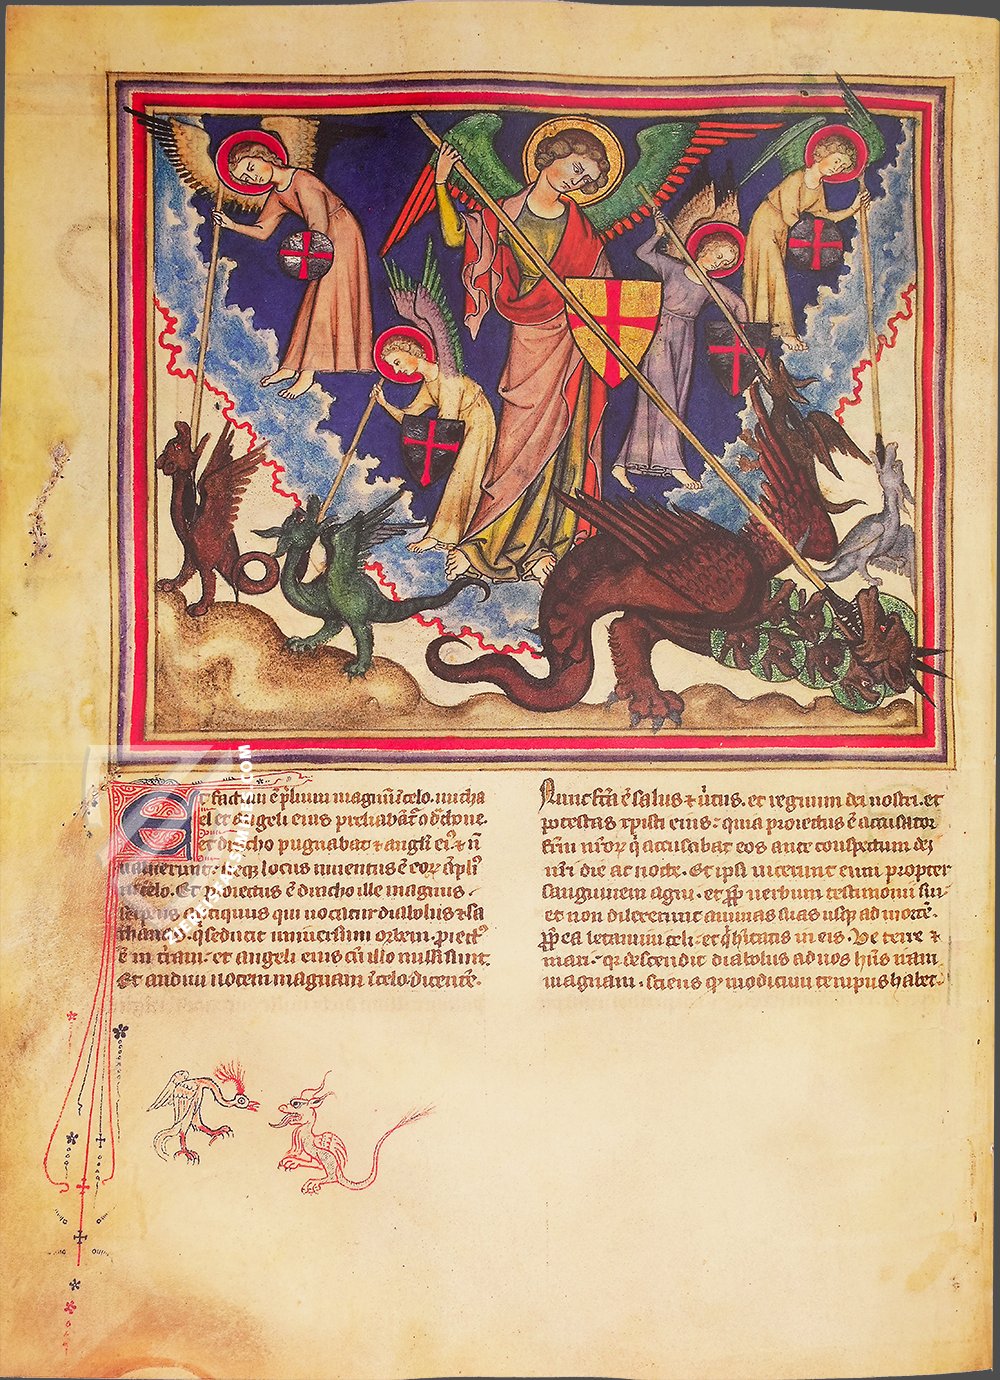 Et factum ē p̄lium magnū ī celo. micha
el et angeli eius preliabāt̄ cū dracone.
et dracho pugnabat ⁊ angl̄i ei⁹. ⁊ n̄
ualuerunt. neqꝫ locus inuentus ē eoꝝ āpli⁹
in celo. Et proiectus ē dracho ille magnus.
serpens antiquus qui uocatur diabolus ⁊ sa
thanas. q̄ seducit uniuersum orbem. p̄iect⁹
ē in t̄ram. et angeli eius cū illo missi sunt.
Et audiui uocem magnam ī celo dicentē.
Nunc fc̄a ē salus ⁊ uirtus. et regnum dei nostri. et
potestas xpisti eius. quia proiectus ē accusator
fr̄m nr̄oꝝ q̄ accusabat eos ante conspectum dei
nr̄i die ac nocte. Et ipsi uicerunt eum propter
sanguinem agni. et ꝓp̄ uerbum testimonii sui
et non dilexerunt animas suas usqꝫ ad mortē.
ꝓp̄ea letamini celi. et q̄ habitatis in eis. Ve terre ⁊
mari. q̄ descendit diabolus ad uos hn̄s iram
magnam. sciens q̄ modicum tempus habet.